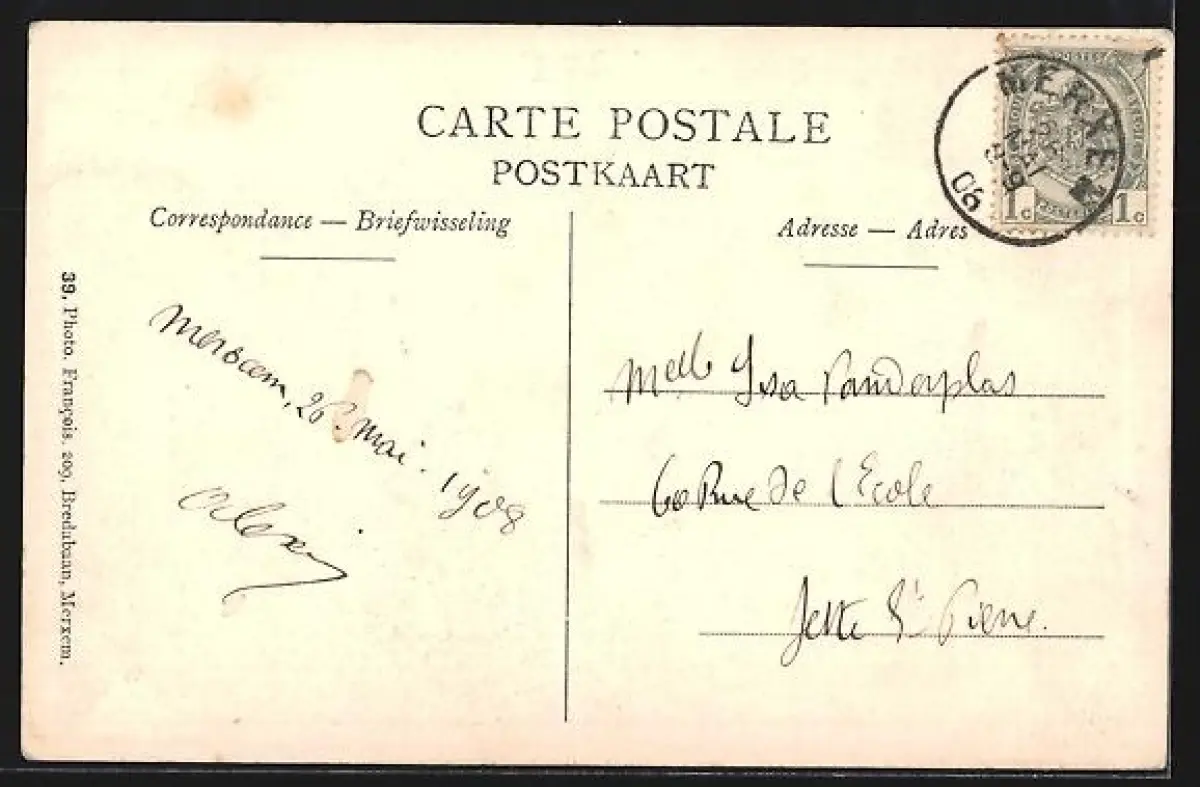 CARTE POSTALE
POSTKAART
Correspondance — Briefwisseling
Adresse — Adres
MERXEM
MAI
1c 1c
39. Photo. François. 209, Bredabaan, Merxem.
26 mai. 1908
Alexis
Melle Vanderplas
60 Rue de l'Ecole
Jette St Pierre.